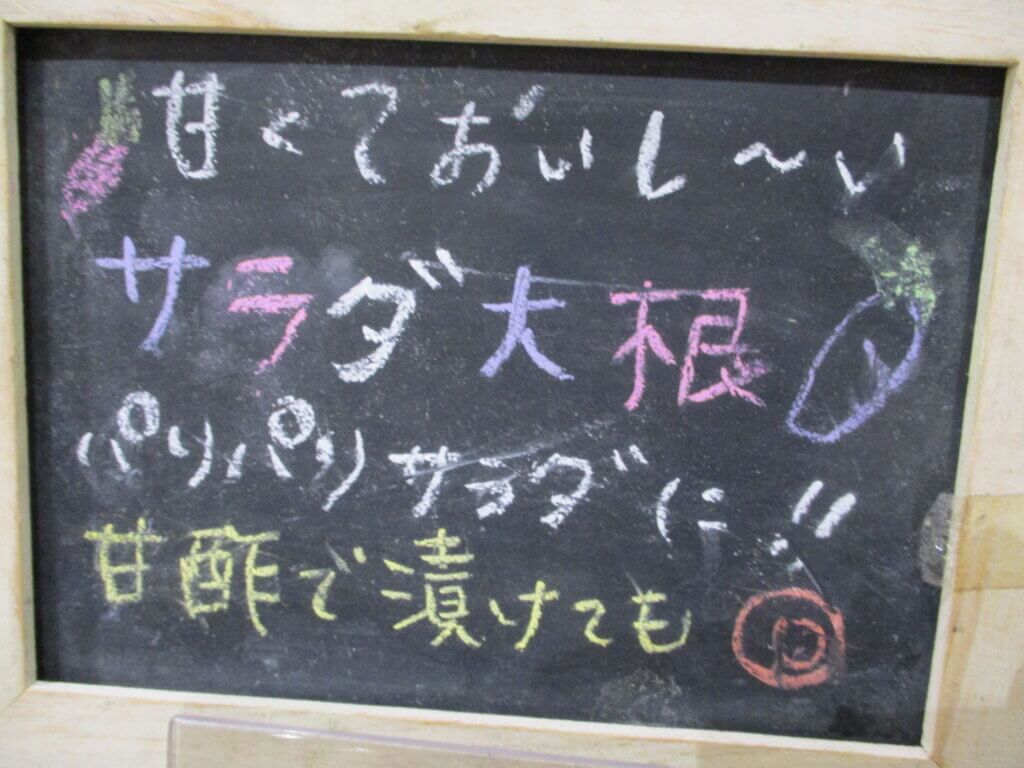 甘くておいし〜い
サラダ大根
パリパリサラダに!!
甘酢で漬けても